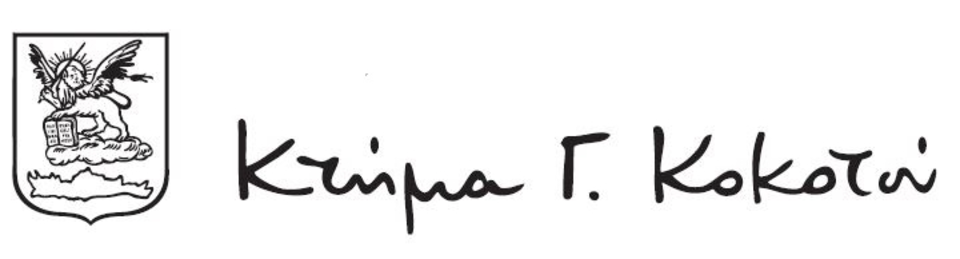 Κτήμα Γ. Κοκοτού